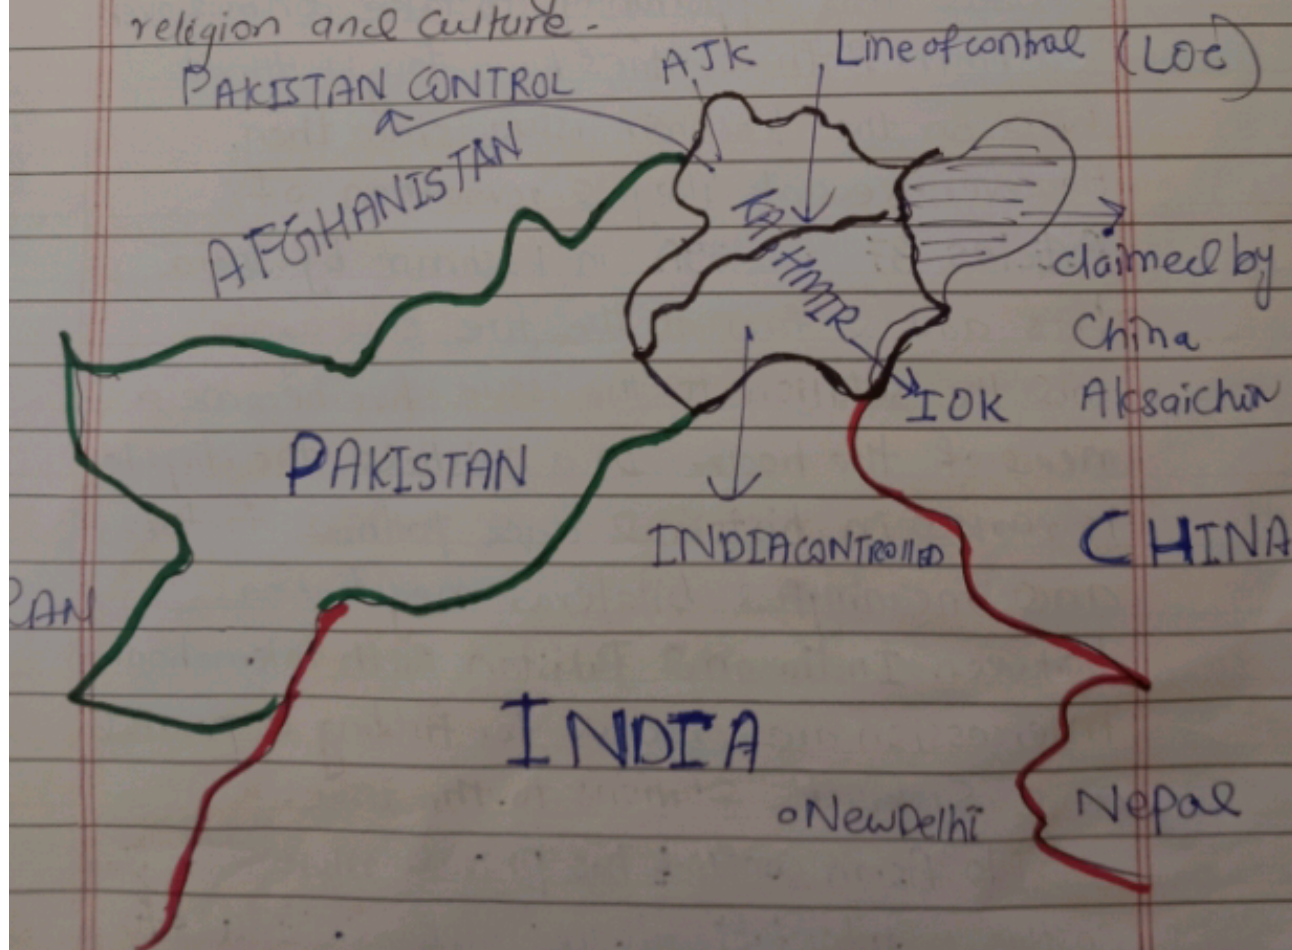 religion and culture.
PAKISTAN CONTROL
AJK
Line of control (LOC)
AFGHANISTAN
KASHMIR
claimed by
China
Aksaichin
IOK
PAKISTAN
INDIA CONTROllED
CHINA
RAN
INDIA
New Delhi
Nepal